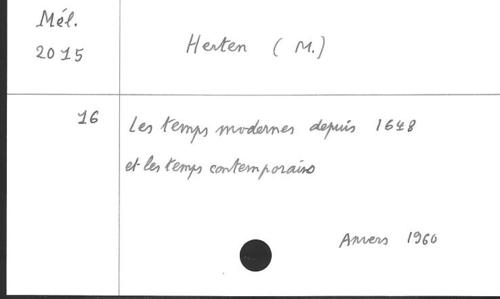 Mél.
2015
Herten (M.)
16
Les temps modernes depuis 1648
et les temps contemporains
Anvers 1960